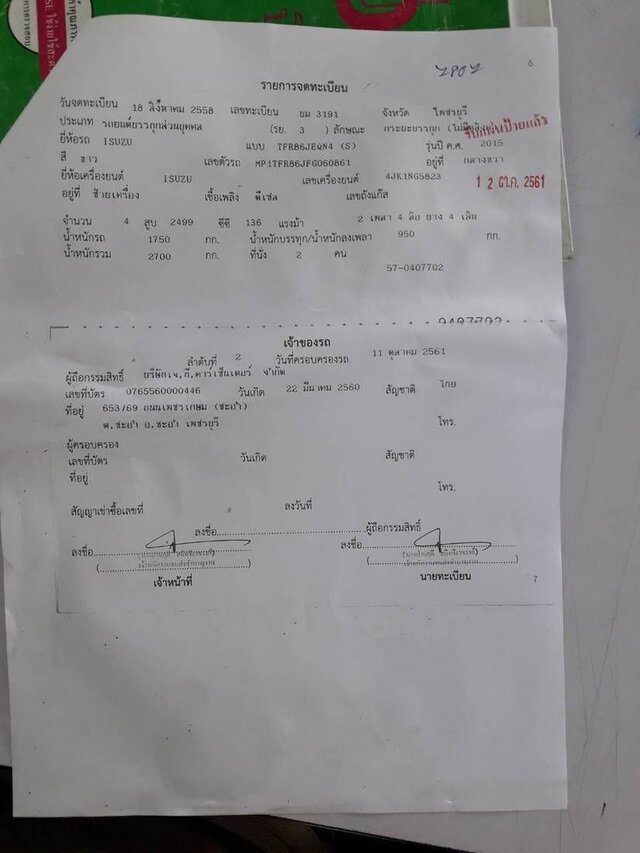 7807
6
รายการจดทะเบียน
วันจดทะเบียน 18 สิงหาคม 2558 เลขทะเบียน ขม 3191 จังหวัด เพชรบุรี
ประเภท รถยนต์บรรทุกส่วนบุคคล (รย. 3 ) ลักษณะ กระบะบรรทุก
รับแผ่นป้ายแล้ว
ยี่ห้อรถ ISUZU แบบ TFR86JEQN4 (S) รุ่นปี ค.ศ. 2015
สี ขาว เลขตัวรถ MP1TFR86JFG060861 อยู่ที่ กลางขวา
ยี่ห้อเครื่องยนต์ ISUZU เลขเครื่องยนต์ 4JK1NG5823
12 ต.ค. 2561
อยู่ที่ ซ้ายเครื่อง เชื้อเพลิง ดีเซล เลขถังแก๊ส
จำนวน 4 สูบ 2499 ซีซี 136 แรงม้า 2 เพลา 4 ล้อ ยาง 4 เส้น
น้ำหนักรถ 1750 กก. น้ำหนักบรรทุก/น้ำหนักลงเพลา 950 กก.
น้ำหนักรวม 2700 กก. ที่นั่ง 2 คน
57-0407702
เจ้าของรถ
ลำดับที่ 2 วันที่ครอบครองรถ 11 ตุลาคม 2561
ผู้ถือกรรมสิทธิ์ บริษัทเจ.ที.คาร์เซ็นเตอร์ จำกัด
เลขที่บัตร 0765560000446 วันเกิด 22 มีนาคม 2560 สัญชาติ ไทย
ที่อยู่ 653/69 ถนนเพชรเกษม (ชะอำ)
ต.ชะอำ อ.ชะอำ เพชรบุรี โทร.
ผู้ครอบครอง
เลขที่บัตร วันเกิด สัญชาติ
ที่อยู่
โทร.
สัญญาเช่าซื้อเลขที่ ลงวันที่
ลงชื่อ ผู้ถือกรรมสิทธิ์
ลงชื่อ ลงชื่อ
เจ้าหน้าที่ นายทะเบียน
7